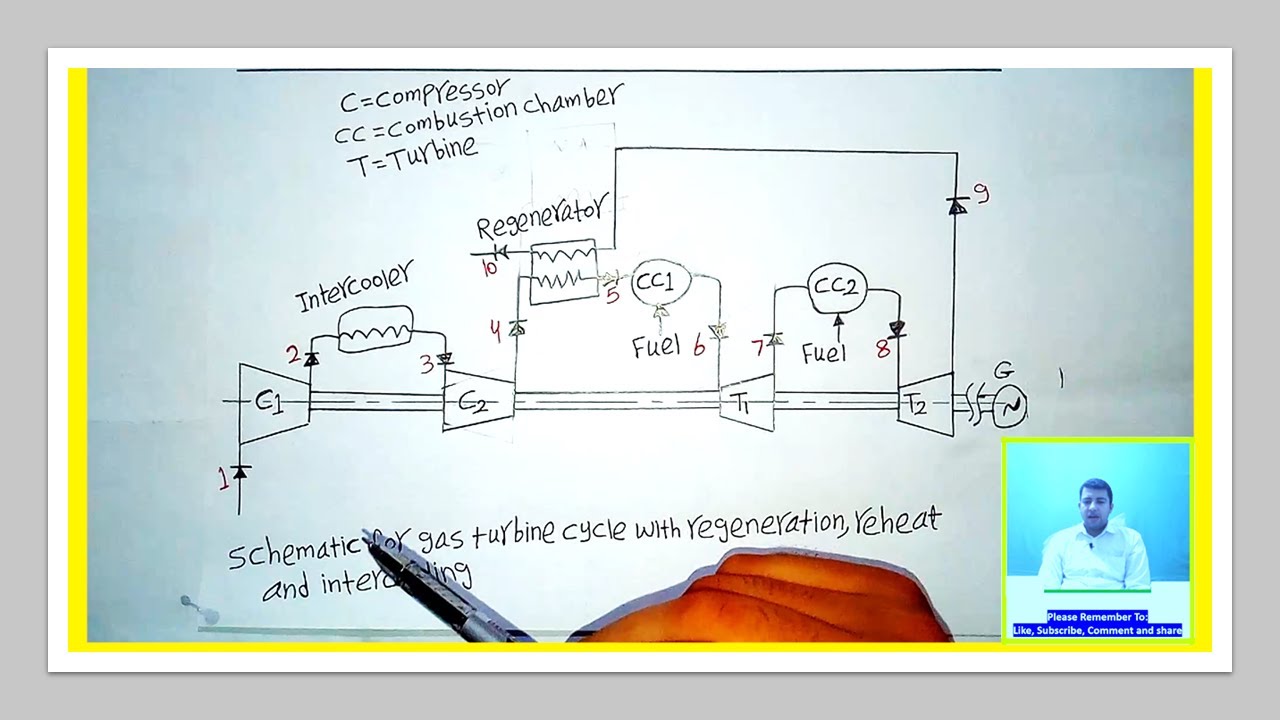 C=Compressor
CC=Combustion chamber
T=Turbine
9
Regenerator
10
5
CC1
CC2
Intercooler
4
Fuel
6
7
Fuel
8
2
3
G
C1
C2
T1
T2
1
Schematic for gas turbine cycle with regeneration, reheat
and intercooling
Please Remember To:
Like, Subscribe, Comment and share